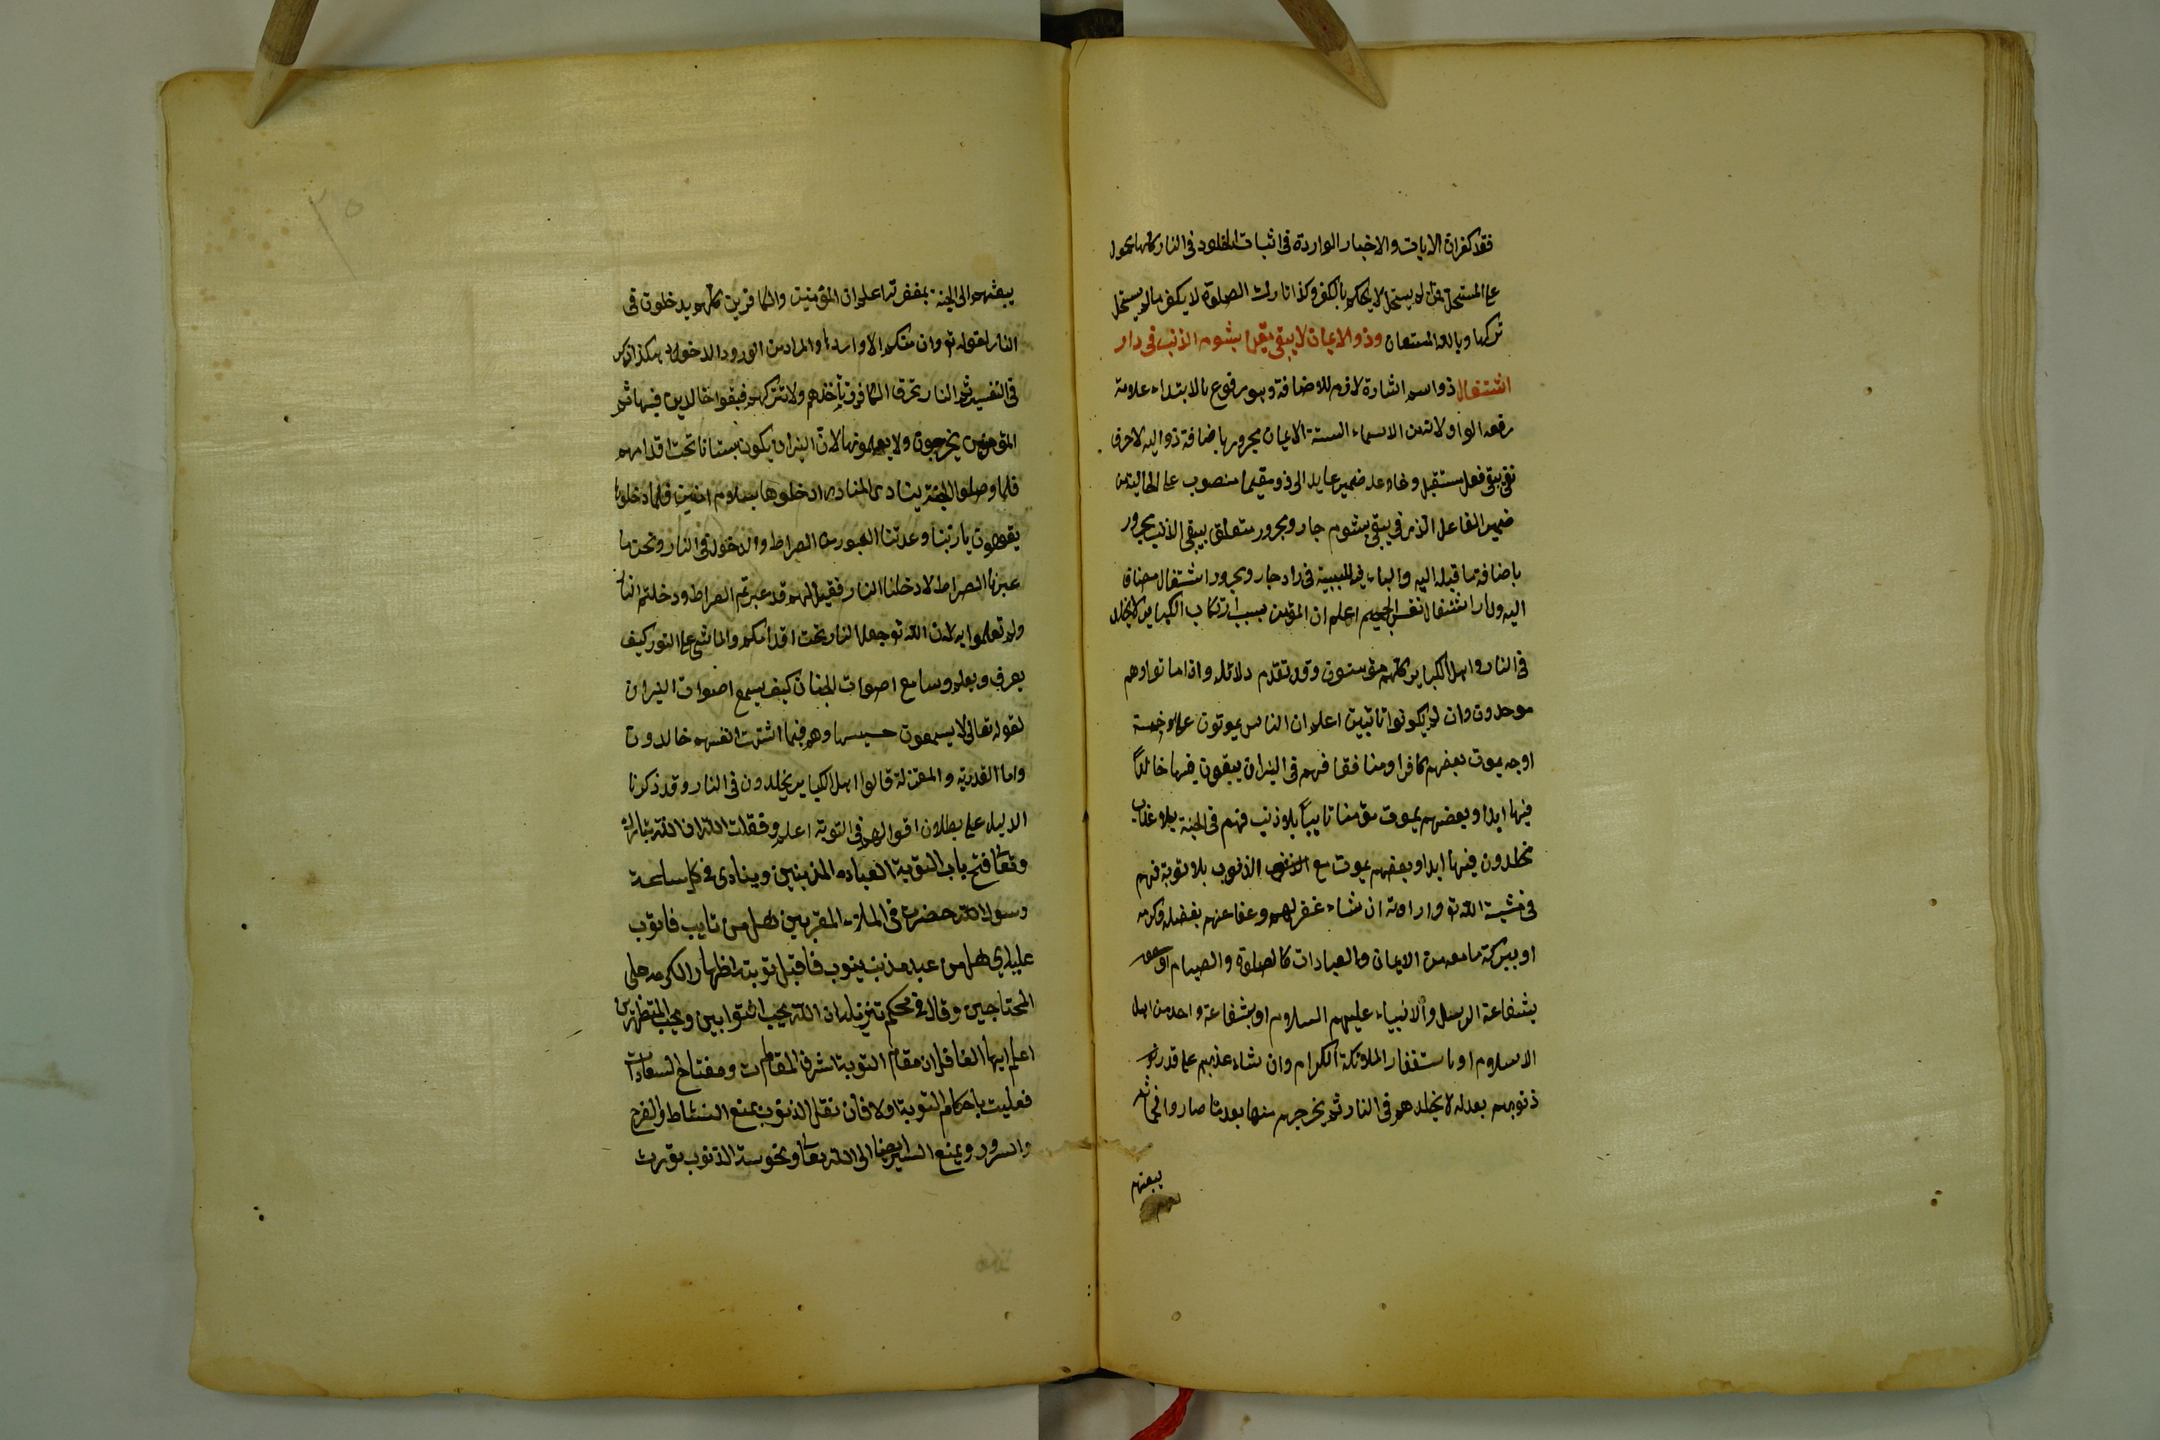 فقد كفر ان الايات والاخبار الواردة فى اثبات الخلود فى النار كلها محمول
على المستحل لا يحكم بالكفر وكذا تارك الصلوة لا يكفر مالم يستحل
تركها وبالله المستعان وذو الايمان لا يبقى مقيما بشوم الذنب فى دار
اشتعال ذو اسم اشارة لازم للاضافة وهو مرفوع بالابتداء علامة
رفعه الواو لانه من الاسماء الستة الايمان مجرور باضافة ذو اليه لا حرف
نفى يبقى فعل مستقبل وفاعله ضمير عايد الى ذو مقيما منصوب على الحالية من
ضمير الفاعل الذى فى يبقى بشوم جار ومجرور متعلق بيبقى الذنب مجرور
باضافة ما قبله اليه والباء فيه للسببية فى دار جار ومجرور اشتعال مضاف
اليه ودار اشتعال نفس الجحيم اعلم ان المؤمن بسبب ارتكاب الكباير لا يخلد
فى النار واهل الكباير كلهم مؤمنون وقد تقدم دلائله واذا ماتوا وهم
موحدون وان لم يكونوا تائبين اعلم ان الناس يموتون على خمسة
اوجه يموت بعضهم كافرا ومنافقا فهم فى النيران يبقون فيها خالدًا
فيها ابدا وبعضهم يموت مؤمنا تايبًا بلا ذنب فهم فى الجنة بلا عذاب
يخلدون فيها ابدا وبعضهم يموت مع الذنوب بلا توبة فهم
فى مشية الله تع وارادته ان شاء غفر لهم وعفا عنهم بفضله وكرمه
او ببركة ما معه من الايمان والعبادات كالصلوة والصيام او
بشفاعة الرسل والانبياء عليهم السلام او بشفاعة واحد من اهل
الاسلام او باستغفار الملائكة الكرام وان شاء عذبهم على قدر
ذنوبهم بعدله لا يخلدهم فى النار ثم يخرجهم منها بعد ما صاروا
يبعثهم
يبعثهم الى الجنة بمغفرته اعلم ان المؤمنين والكافرين كلهم يدخلون فى
النار لقوله تع وان منكم الا واردها والمراد من الورود الدخول هكذا ذكر
فى التفسير ثم النار تحرق الكافر وتأخذهم ولا تتركهم فبقوا خالدين فيها ثم
المؤمنين يخرجون ولا يعلمونها لانّ النيران يكون بستانا تحت اقدامهم
فلما وصلوا الجنة ينادى المنادى ادخلوها بسلام امنين فلما دخلوا
يقولون يا ربنا وعدتنا العبور من الصراط والدخول فى النار ونحن ما
عبرنا الصراط لا دخلنا النار فقيل لهم قد عبرتم الصراط ودخلتم النار
ولم تعلموا به لان الله تع جعل النار تحت اقدامكم والماشى على النور كيف
يعرف ويعلم وسامع اصوات الجنان كيف يسمع اصوات النيران
لقوله تعالى لا يسمعون حسيسها وهم فيما اشتهت انفسهم خالدون
واما القدرية والمعتزلة قالوا اهل الكباير يخلدون فى النار وقد ذكرنا
الدليل على بطلان اقوالهم فى التوبة اعلم وفقك الله ان الله تبارك
وتعا فتح باب التوبة لعباده المذنبين وينادى فى كل ساعة
رسول الله حضرت فى الملاء المقربين هل من تايب فاتوب
عليه اى هل من عبد مذنب يتوب فاقبل توبته اظهار الكرمه على
المحتاجين وقال فى محكم تنزيله ان الله يحب التوابين ويحب المتطهرين
اعلم ايها الغافل ان مقام التوبة اشرف المقامات ومفتاح السعادات
فعليك باحكام التوبة اولا فان ثقل الذنوب يمنع النشاط والفرح
والسرور ويمنع السير الى الله تعا ونحوسة الذنوب يورث